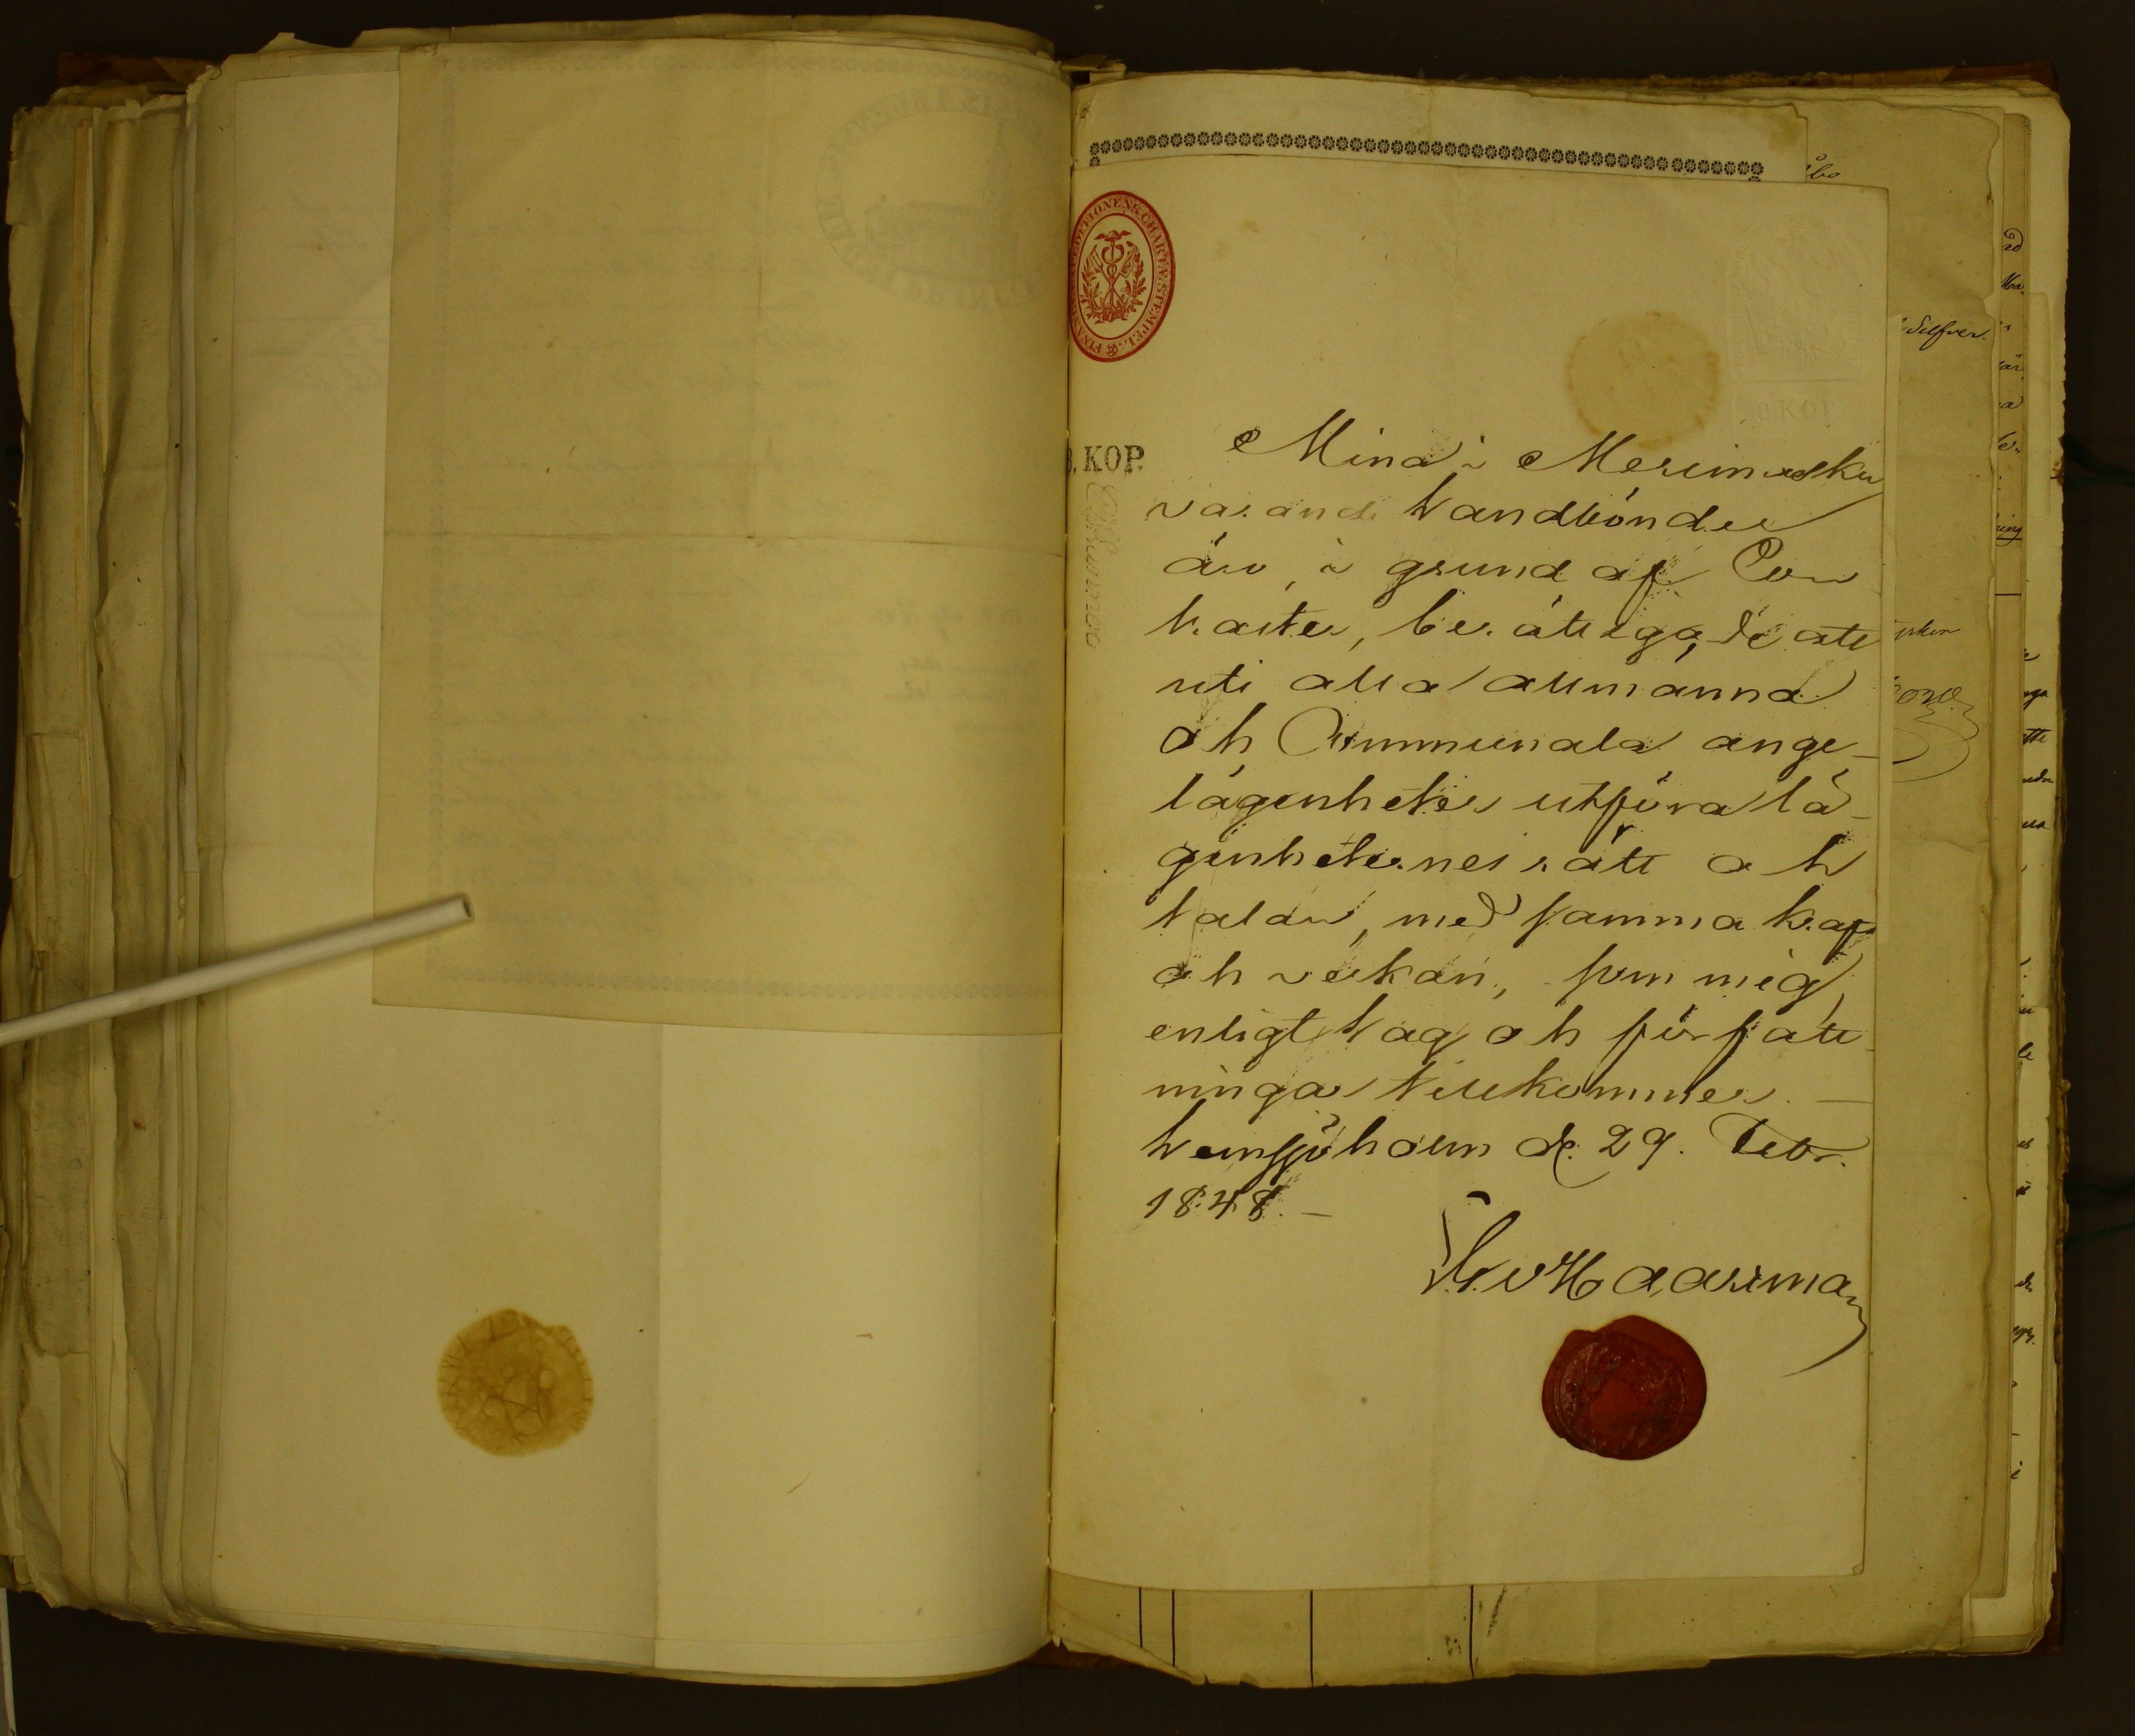 FINANCE EXPEDITIONENS CHARTÆ STEMPEL.
KOP.
Mina i Merimasku
varande Landbönder
äro, i grund af Con-
tracter, berättigade att
uti alla allmänna
och Communala ange-
lägenheter utföra lä-
genheternes rätt och
talan, med samma kraft
och verkan, som mig
enligt Lag och författ-
ningar tillkommer. —
Lemsjöholm d. 29. Febr.
1848. —
Haartman
Silfver.